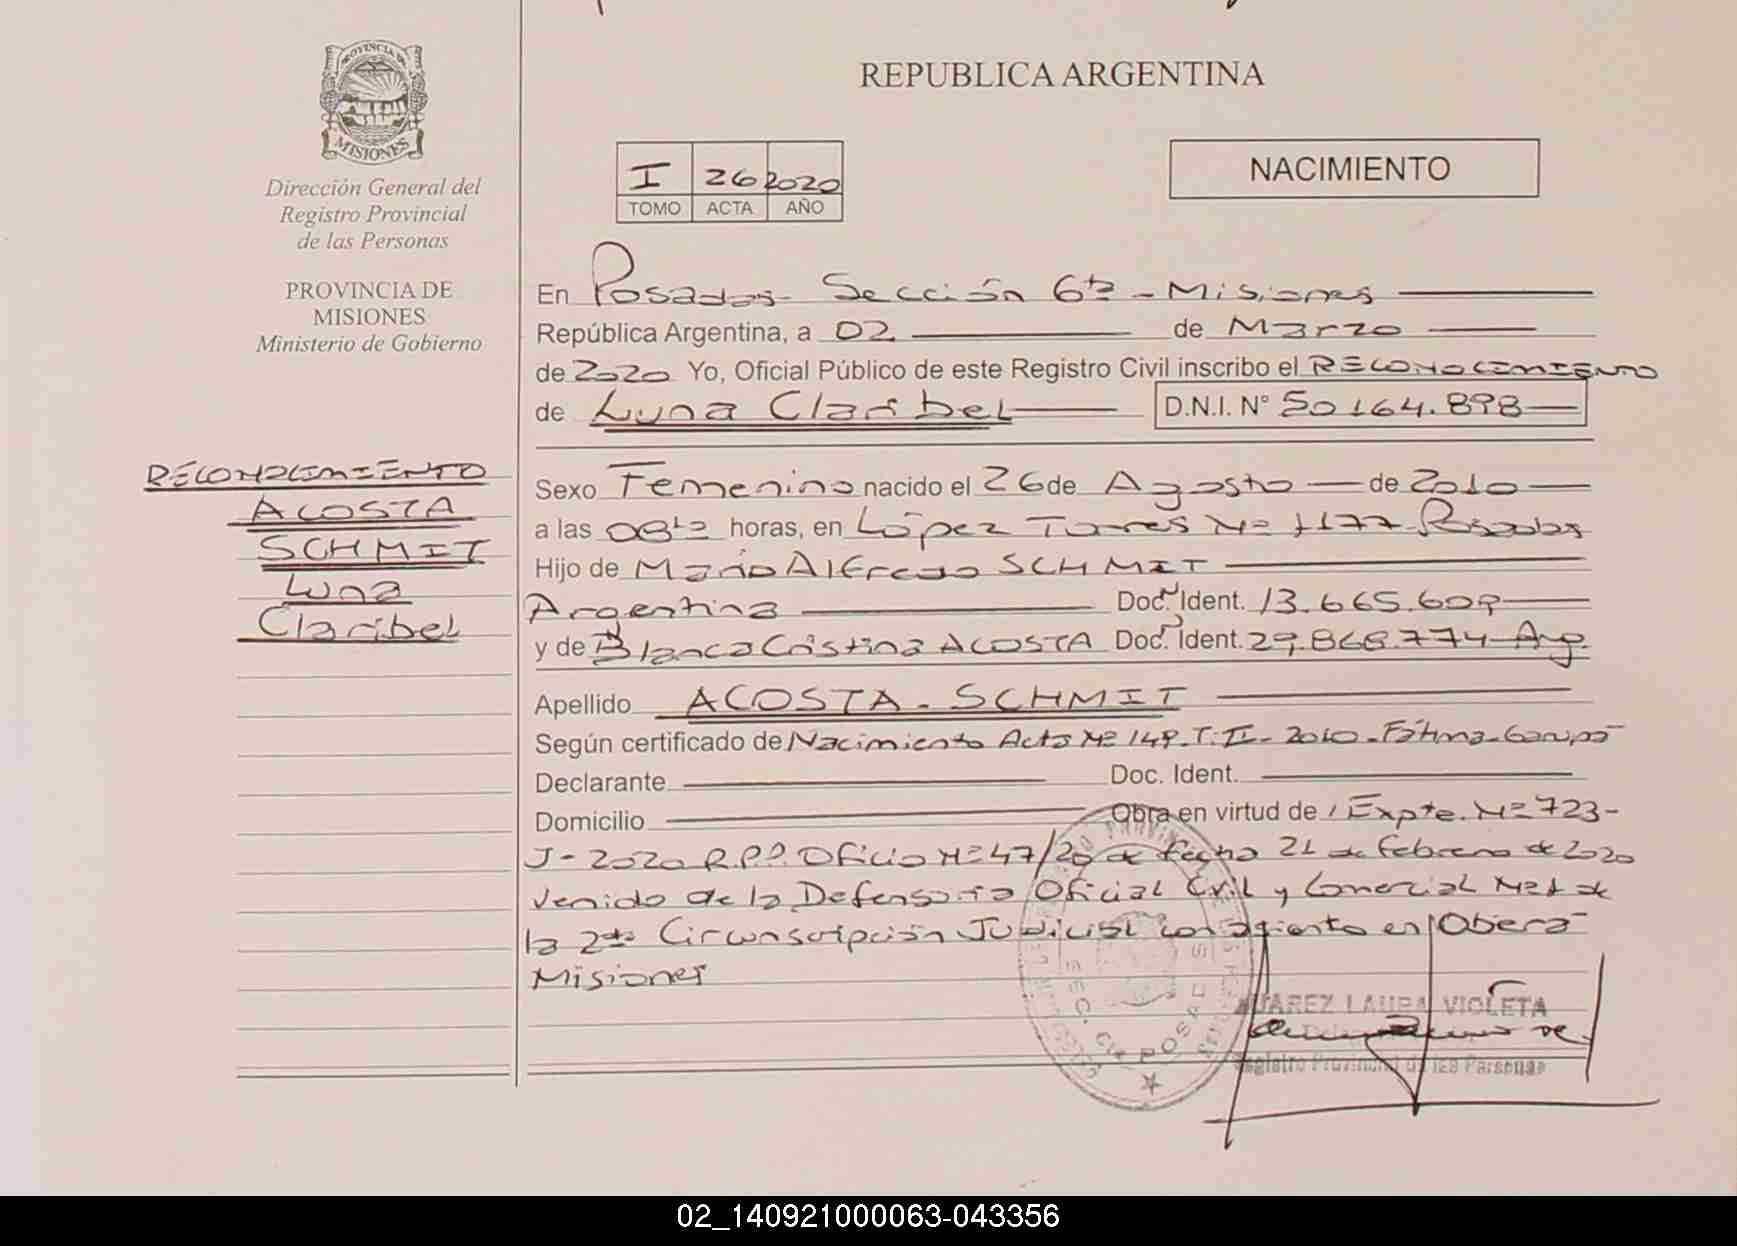 PROVINCIA DE
MISIONES
Dirección General del
Registro Provincial
de las Personas
PROVINCIA DE
MISIONES
Ministerio de Gobierno
RECONOCIMIENTO
ACOSTA
SCHMIT
Luna
Claribel
REPUBLICA ARGENTINA
I 26 2020
TOMO ACTA AÑO
NACIMIENTO
En Posadas Sección 6ta - Misiones
República Argentina, a 02 de Marzo
de 2020 Yo, Oficial Público de este Registro Civil inscribo el RECONOCIMIENTO
de Luna Claribel D.N.I. N° 50164.898
Sexo Femenino nacido el 26 de Agosto de 2010
a las 08 horas, en López Torres Nº 1177 Posadas
Hijo de Mario Alfredo SCHMIT
Argentina Doc. Ident. 13.665.609
y de Blanca Cristina ACOSTA Doc. Ident. 29.868.774 Arg.
Apellido ACOSTA - SCHMIT
Según certificado de Nacimiento Acta Nº 149 - T. II - 2010 - Fátima - Garupá
Declarante Doc. Ident.
Domicilio Obra en virtud de Expte. Nº 723-
J - 2020 R.P.P. Oficio Nº 47/20 de fecha 21 de Febrero de 2020
venido de la Defensoría Oficial Civil y Comercial Nº 1 de
la 2da Circunscripción Judicial con asiento en Oberá
Misiones
JUAREZ LAURA VIOLETA
Registro Provincial de las Personas
02_140921000063-043356